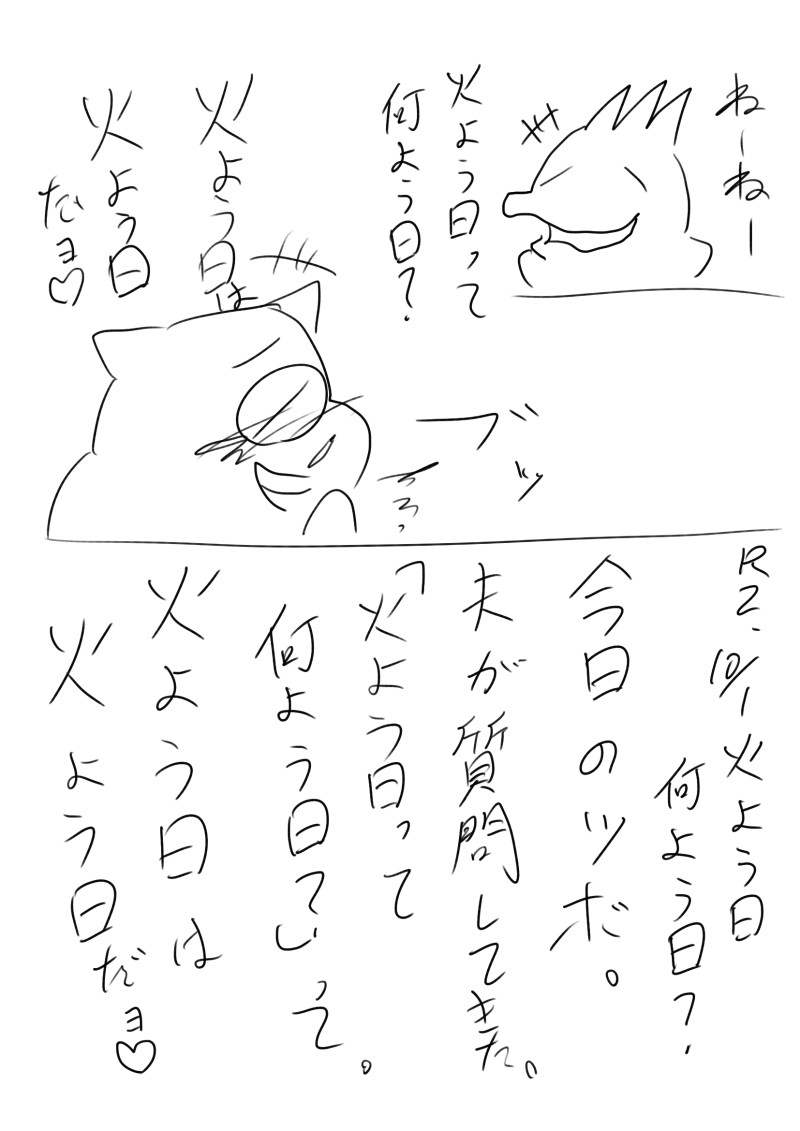 ねーねー
火よう日って
何よう日?
火よう日は
火よう日
だョ♡
ブッ
R2.10/1
火よう日
何よう日?
今日のツボ。
夫が質問してきた。
「火よう日って
何よう日?」って。
火よう日は
火よう日だョ♡